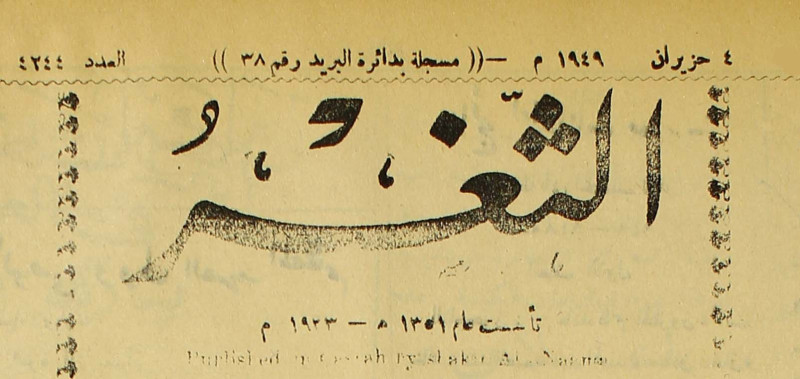 ٤ حزيران ١٩٤٩ م —(( مسجلة بدائرة البريد رقم ٣٨ )) العدد ٤٢٤٤
الثغر
تأسست عام ١٣٥١ ه — ١٩٣٣ م
Published in by Shaker